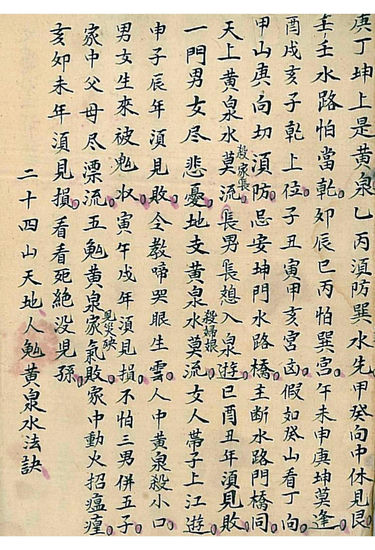 庚丁坤上是黃泉乙丙須防巽水先甲癸向中休見艮
壬壬水路怕當乾卯辰巳丙怕巽宮午未申庚坤莫逢
酉戌亥子乾上位子丑寅甲亥宮凶假如癸山看丁向
甲山庚向切須防忌安坤門水路橋主断水路門橋同
天上黃泉水莫流長男長媳入泉遊巳酉丑年須見敗
殺家長
一門男女尽悲憂地支黃泉水莫流女人帶子上江遊
殺婦娘
申子辰年須見敗全教啼哭眼生雲人中黃泉殺小口
男女生來被鬼收寅午戌年須見損不怕三男併五子
家中父母尽漂流五鬼黃泉家氣敗家中動火招瘟瘽
見災殃
亥卯未年須見損看看死絕没児孫
二十四山天地人鬼黃泉水法訣